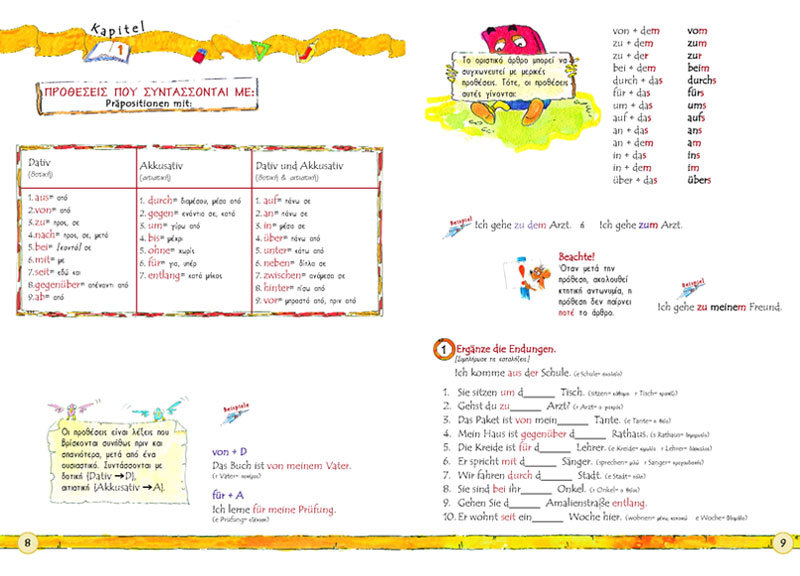 Kapitel
1
ΠΡΟΘΕΣΕΙΣ ΠΟΥ ΣΥΝΤΑΣΣΟΝΤΑΙ ΜΕ:
Präpositionen mit:
Dativ
(δοτική)
1.aus= από
2.von= από
3.zu= προς, σε
4.nach= προς, σε, μετά
5.bei= [κοντά] σε
6.mit= με
7.seit= εδώ και
8.gegenüber= απέναντι από
9.ab= από
Akkusativ
(αιτιατική)
1. durch= διαμέσου, μέσα από
2. gegen= ενάντια σε, κατά
3. um= γύρω από
4. bis= μέχρι
5. ohne= χωρίς
6. für= για, υπέρ
7. entlang= κατά μήκος
Dativ und Akkusativ
(δοτική & αιτιατική)
1. auf= πάνω σε
2. an= πάνω σε
3. in= μέσα σε
4. über= πάνω από
5. unter= κάτω από
6. neben= δίπλα σε
7. zwischen= ανάμεσα σε
8. hinter= πίσω από
9. vor= μπροστά από, πριν από
Οι προθέσεις είναι λέξεις που
βρίσκονται συνήθως πριν και
σπανιότερα, μετά από ένα
ουσιαστικό. Συντάσσονται με
δοτική {Dativ →D},
αιτιατική {Akkusativ →A}.
Beispiele
von + D
Das Buch ist von meinem Vater.
(r Vater= πατέρας)
für + A
Ich lerne für meine Prüfung.
(e Prüfung= εξέταση)
8
Το οριστικό άρθρο μπορεί να
συγχωνευτεί με μερικές
προθέσεις. Τότε, οι προθέσεις
αυτές γίνονται:
von + dem vom
zu + dem zum
zu + der zur
bei + dem beim
durch + das durchs
für + das fürs
um + das ums
auf + das aufs
an + das ans
an + dem am
in + das ins
in + dem im
über + das übers
Beispiel
Ich gehe zu dem Arzt. ή Ich gehe zum Arzt.
Beachte!
Όταν μετά την
πρόθεση, ακολουθεί
κτητική αντωνυμία, η
πρόθεση δεν παίρνει
ποτέ το άρθρο.
Beispiel
Ich gehe zu meinem Freund.
1 Ergänze die Endungen.
[Συμπλήρωσε τις καταλήξεις]
Ich komme aus der Schule. (e Schule= σχολείο)
1. Sie sitzen um d______ Tisch. (sitzen= κάθομαι r Tisch= τραπέζι)
2. Gehst du zu______ Arzt? (r Arzt= ο γιατρός)
3. Das Paket ist von mein______ Tante. (e Tante= η θεία)
4. Mein Haus ist gegenüber d______ Rathaus. (s Rathaus= δημαρχείο)
5. Die Kreide ist für d______ Lehrer. (e Kreide= κιμωλία r Lehrer= δάσκαλος)
6. Er spricht mit d______ Sänger. (sprechen= μιλώ r Sänger= τραγουδιστής)
7. Wir fahren durch d______ Stadt. (e Stadt= πόλη)
8. Sie sind bei ihr______ Onkel. (r Onkel= ο θείος)
9. Gehen Sie d______ Amalienstraße entlang.
10. Er wohnt seit ein______ Woche hier. (wohnen= μένω, κατοικώ e Woche= βδομάδα)
9